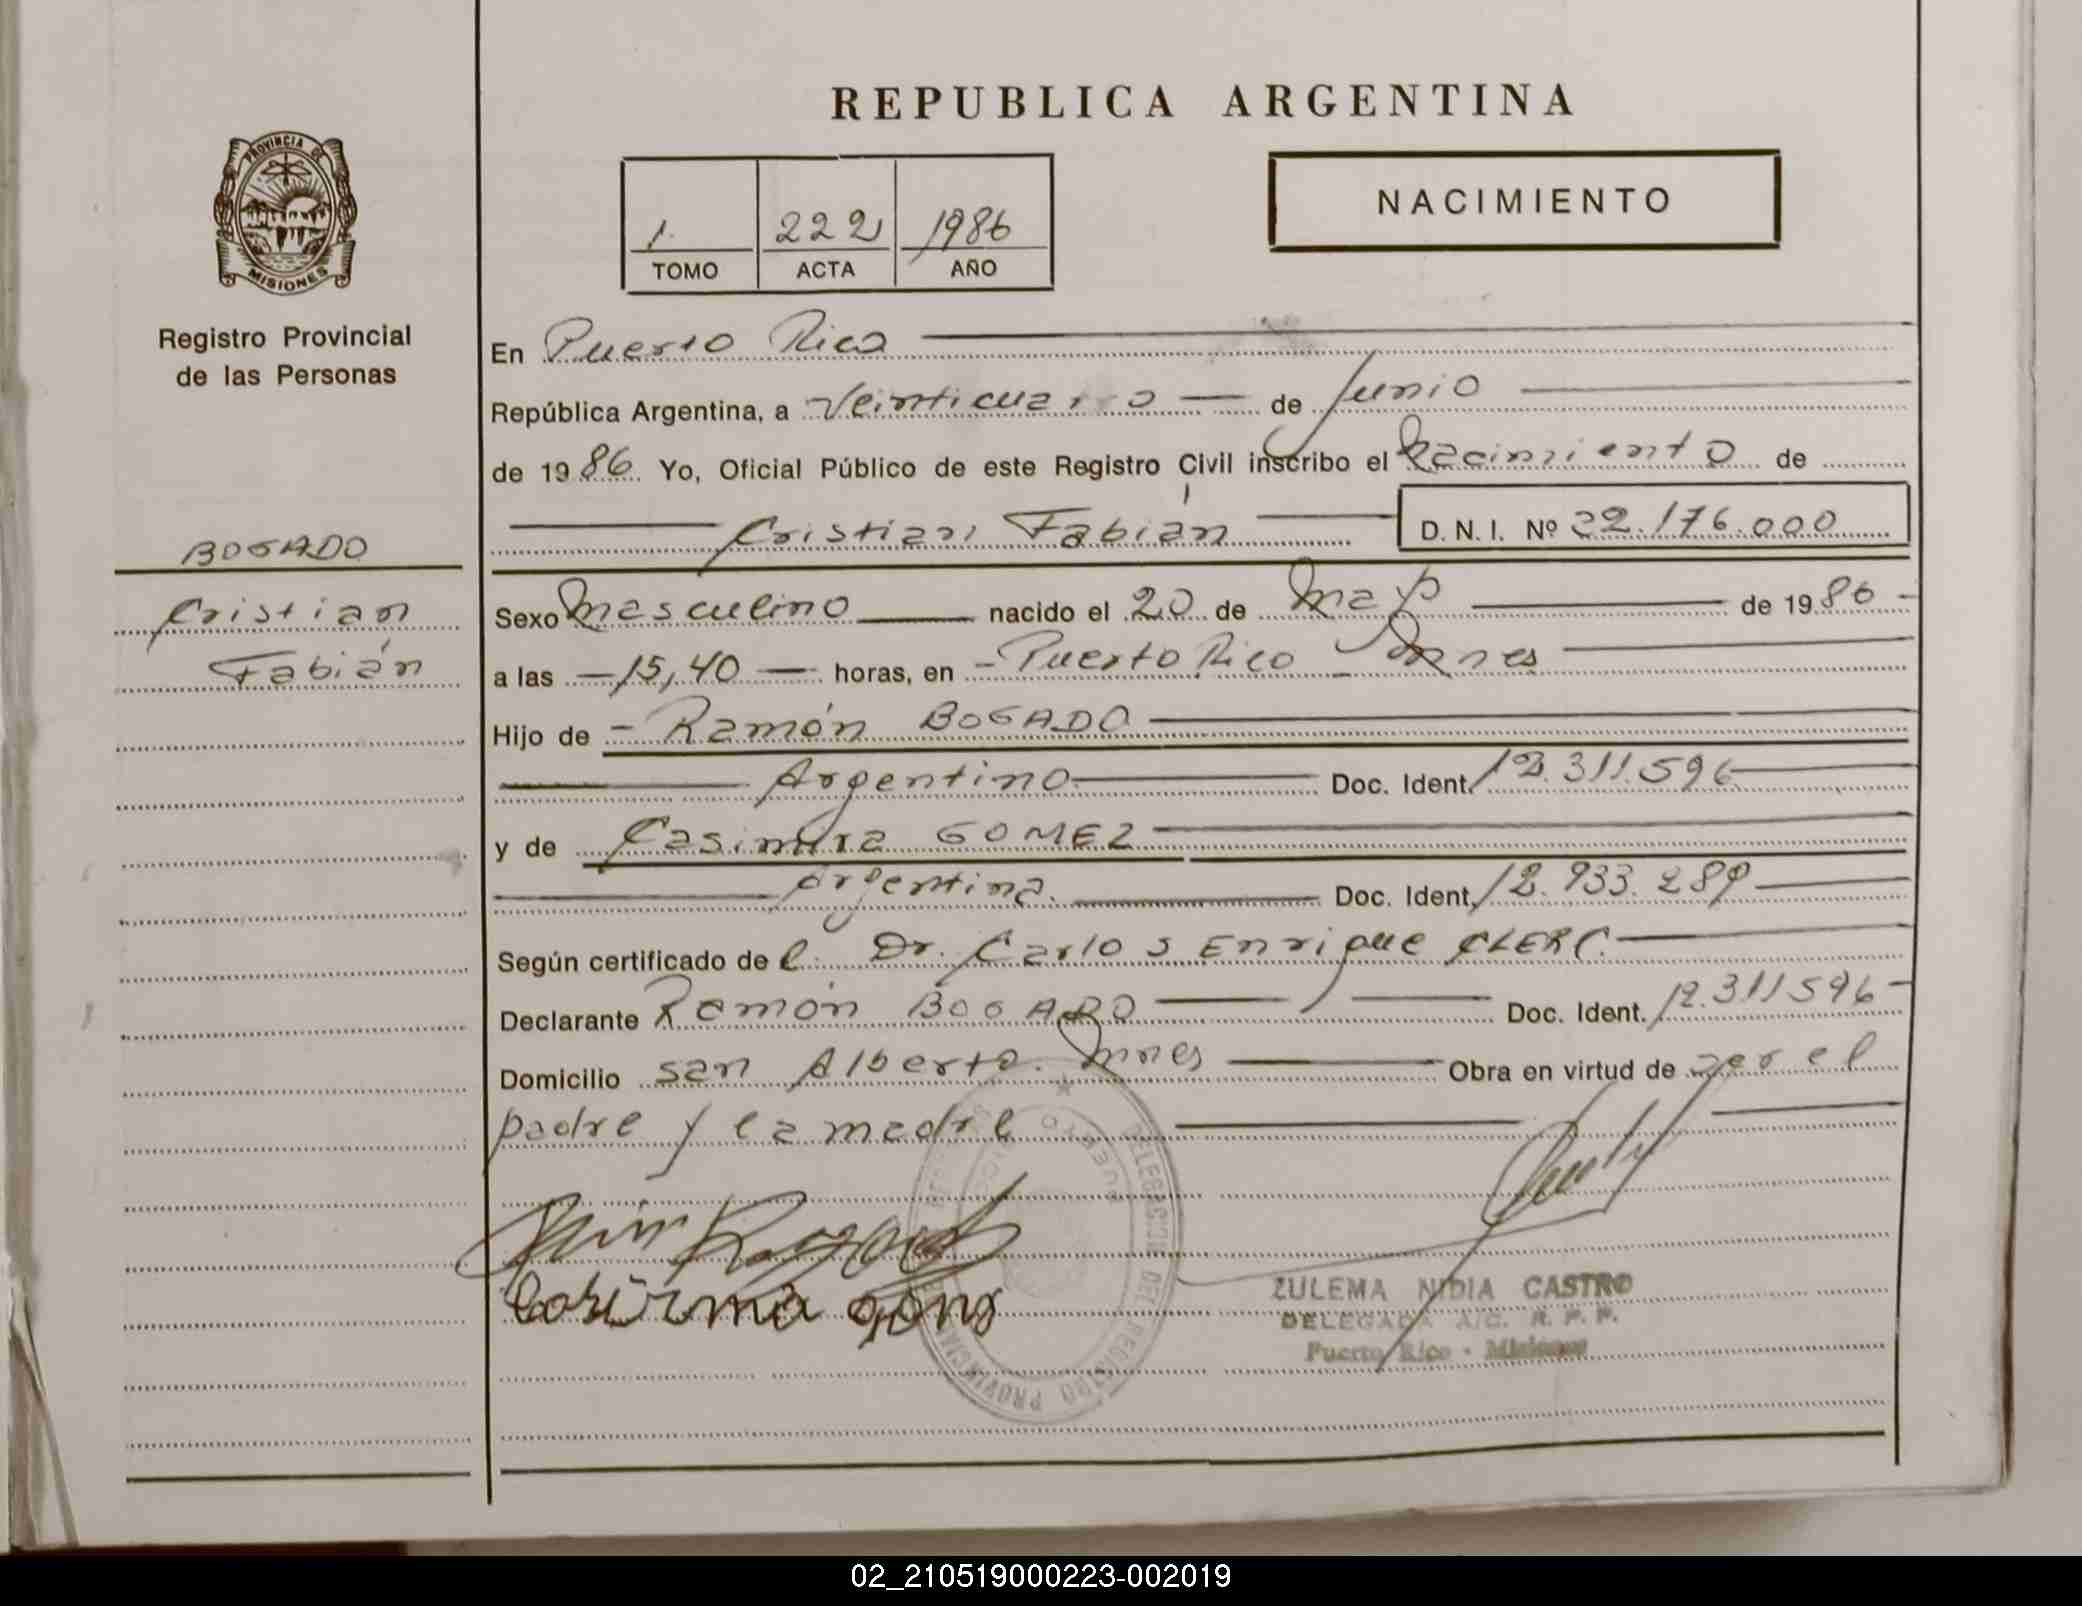 REPUBLICA ARGENTINA
PROVINCIA DE
MISIONES
Registro Provincial
de las Personas
1. 222 1986
TOMO ACTA AÑO
NACIMIENTO
En Puerto Rico
República Argentina, a Veinticuatro de Junio
de 1986 Yo, Oficial Público de este Registro Civil inscribo el Nacimiento de
Cristian Fabián D. N. I. Nº 22.176.000
BOGADO
Cristian
Fabián
Sexo Masculino nacido el 20 de Mayo de 1986
a las 15,40 horas, en Puerto Rico Mnes
Hijo de Ramón BOGADO
Argentino Doc. Ident. 12.311.596
y de Casimira GOMEZ
Argentina. Doc. Ident. 12.933.289
Según certificado de l Dr. Carlos Enrique CLERC.
Declarante Ramón BOGADO Doc. Ident. 12.311596
Domicilio san Alberto. Mnes Obra en virtud de ser el
padre y la madre
ZULEMA NIDIA CASTRO
DELEGADA A/C. R. P. P.
Puerto Rico - Misiones
DELEGACION DEL REGISTRO PROVINCIAL
PUERTO RICO
02_210519000223-002019